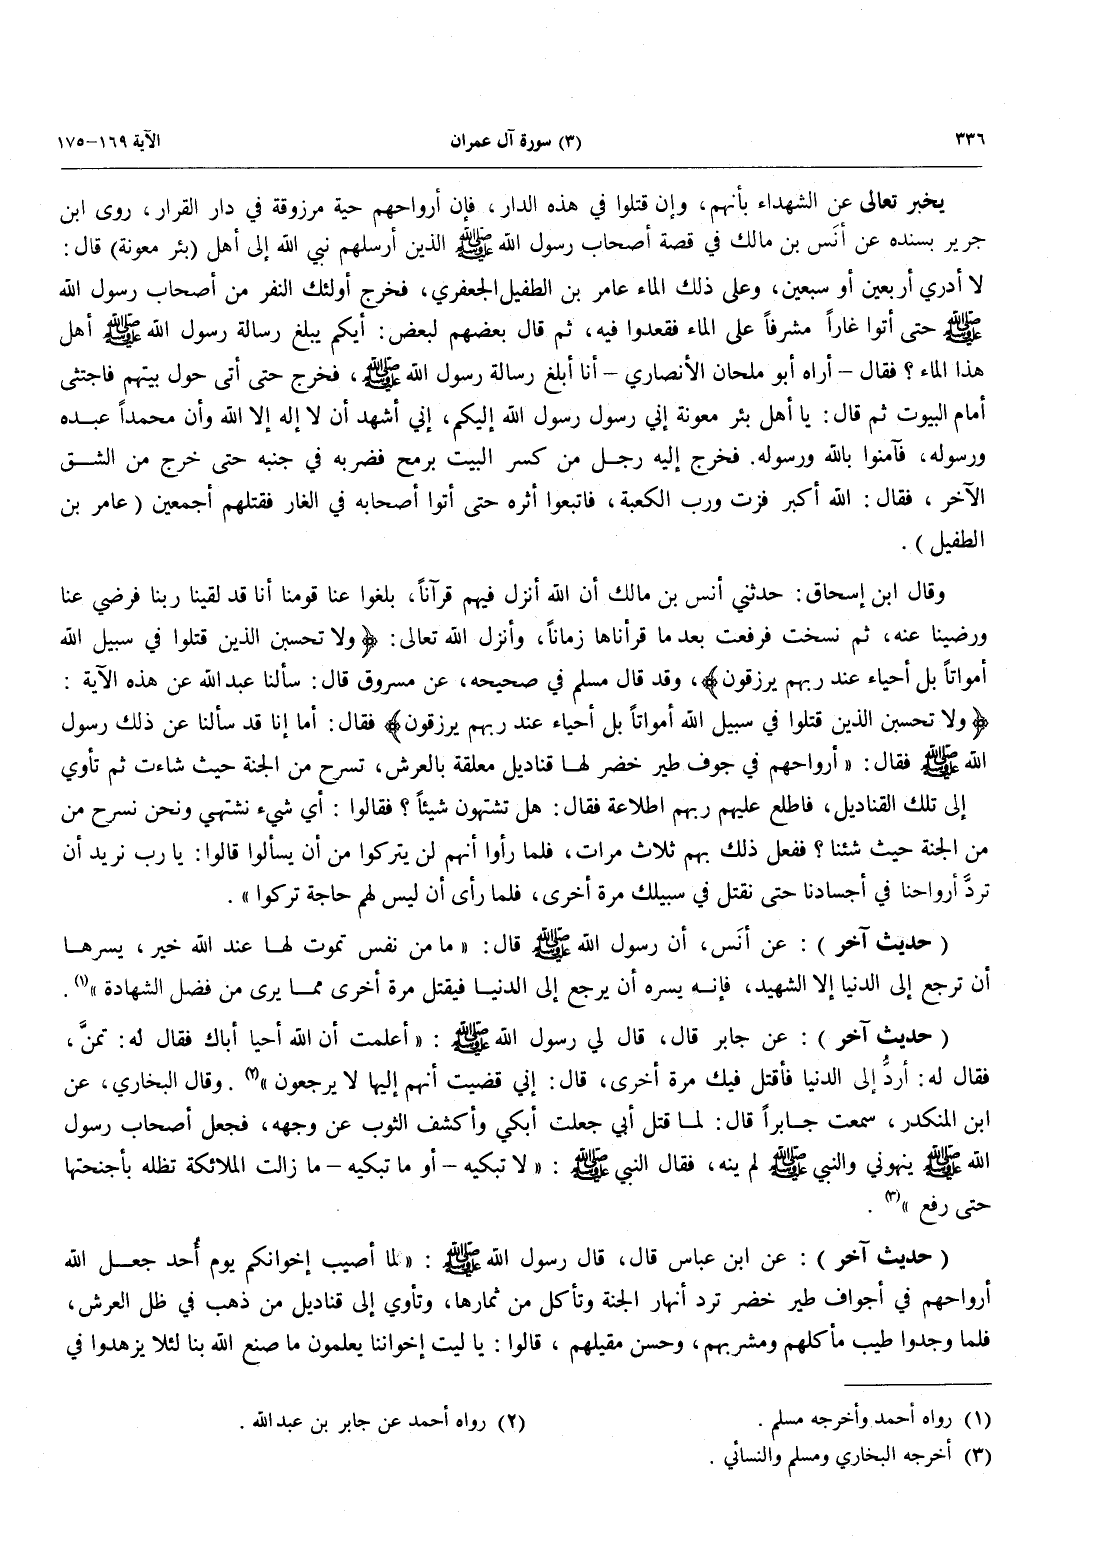 ٣٣٦ (٣) سورة آل عمران الآية ١٦٩-١٧٥
يخبر تعالى عن الشهداء بأنهم، وإن قتلوا في هذه الدار، فإن أرواحهم حية مرزوقة في دار القرار، روى ابن
جرير بسنده عن أنَس بن مالك في قصة أصحاب رسول الله ﷺ الذين أرسلهم نبي الله إلى أهل (بئر معونة) قال:
لا أدري أربعين أو سبعين، وعلى ذلك الماء عامر بن الطفيل الجعفري، فخرج أولئك النفر من أصحاب رسول الله
ﷺ حتى أتوا غاراً مشرفاً على الماء فقعدوا فيه، ثم قال بعضهم لبعض: أيكم يبلغ رسالة رسول الله ﷺ أهل
هذا الماء؟ فقال - أراه أبو ملحان الأنصاري - أنا أبلغ رسالة رسول الله ﷺ، فخرج حتى أتى حول بيتهم فاجتثى
أمام البيوت ثم قال: يا أهل بئر معونة إني رسول رسول الله إليكم، إني أشهد أن لا إله إلا الله وأن محمداً عبده
ورسوله، فآمنوا بالله ورسوله. فخرج إليه رجل من كسر البيت برمح فضربه في جنبه حتى خرج من الشق
الآخر، فقال: الله أكبر فزت ورب الكعبة، فاتبعوا أثره حتى أتوا أصحابه في الغار فقتلهم أجمعين (عامر بن
الطفيل).
وقال ابن إسحاق: حدثني أنس بن مالك أن الله أنزل فيهم قرآناً، بلغوا عنا قومنا أنا قد لقينا ربنا فرضي عنا
ورضينا عنه، ثم نسخت فرفعت بعد ما قرأناها زماناً، وأنزل الله تعالى: ﴿ولا تحسبن الذين قتلوا في سبيل الله
أمواتاً بل أحياء عند ربهم يرزقون﴾، وقد قال مسلم في صحيحه، عن مسروق قال: سألنا عبد الله عن هذه الآية:
﴿ولا تحسبن الذين قتلوا في سبيل الله أمواتاً بل أحياء عند ربهم يرزقون﴾ فقال: أما إنا قد سألنا عن ذلك رسول
الله ﷺ فقال: «أرواحهم في جوف طير خضر لها قناديل معلقة بالعرش، تسرح من الجنة حيث شاءت ثم تأوي
إلى تلك القناديل، فاطلع عليهم ربهم اطلاعة فقال: هل تشتهون شيئاً؟ فقالوا: أي شيء نشتهي ونحن نسرح من
من الجنة حيث شئنا؟ ففعل ذلك بهم ثلاث مرات، فلما رأوا أنهم لن يتركوا من أن يسألوا قالوا: يا رب نريد أن
تردَّ أرواحنا في أجسادنا حتى نقتل في سبيلك مرة أخرى، فلما رأى أن ليس لهم حاجة تركوا».
(حديث آخر): عن أنَس، أن رسول الله ﷺ قال: «ما من نفس تموت لها عند الله خير، يسرها
أن ترجع إلى الدنيا إلا الشهيد، فإنه يسره أن يرجع إلى الدنيا فيقتل مرة أخرى مما يرى من فضل الشهادة»(١).
(حديث آخر): عن جابر قال، قال لي رسول الله ﷺ: «أعلمت أن الله أحيا أباك فقال له: تمنَّ،
فقال له: أردُّ إلى الدنيا فأقتل فيك مرة أخرى، قال: إني قضيت أنهم إليها لا يرجعون»(٢). وقال البخاري، عن
ابن المنكدر، سمعت جابراً قال: لما قتل أبي جعلت أبكي وأكشف الثوب عن وجهه، فجعل أصحاب رسول
الله ﷺ ينهوني والنبي ﷺ لم ينه، فقال النبي ﷺ: «لا تبكيه - أو ما تبكيه - ما زالت الملائكة تظله بأجنحتها
حتى رفع»(٣).
(حديث آخر): عن ابن عباس قال، قال رسول الله ﷺ: «لما أصيب إخوانكم يوم أُحد جعل الله
أرواحهم في أجواف طير خضر ترد أنهار الجنة وتأكل من ثمارها، وتأوي إلى قناديل من ذهب في ظل العرش،
فلما وجدوا طيب مأكلهم ومشربهم، وحسن مقيلهم، قالوا: يا ليت إخواننا يعلمون ما صنع الله بنا لئلا يزهدوا في
(١) رواه أحمد وأخرجه مسلم. (٢) رواه أحمد عن جابر بن عبد الله.
(٣) أخرجه البخاري ومسلم والنسائي.